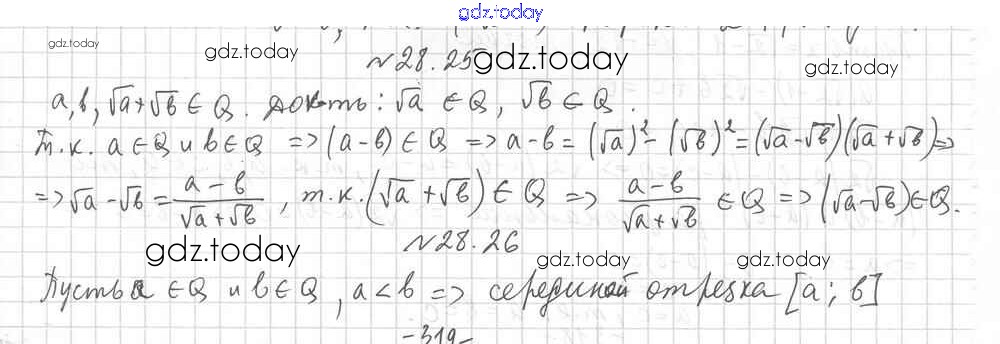 gdz.today
gdz.today
№28.25
gdz.today
gdz.today
gdz.today
a, b, √a+√b ∈ Q. док-ть: √a ∈ Q, √b ∈ Q.
Т.к. a ∈ Q и b ∈ Q => (a-b) ∈ Q => a-b = (√a)² - (√b)² = (√a-√b)(√a+√b) =>
=> √a-√b = (a-b)/(√a+√b), т.к. (√a+√b) ∈ Q => (a-b)/(√a+√b) ∈ Q => (√a-√b) ∈ Q.
gdz.today
№28.26
gdz.today
gdz.today
Пусть a ∈ Q и b ∈ Q, a < b => серединой отрезка [a; b]
-319-